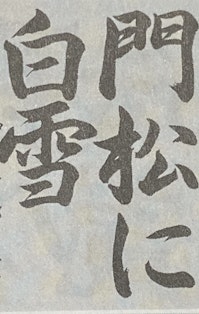 門松に
白雪